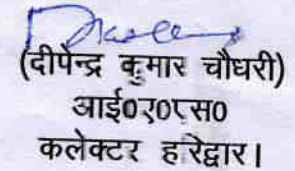 (दीपेन्द्र कुमार चौधरी)
आई०ए०एस०
कलेक्टर हरिद्वार।